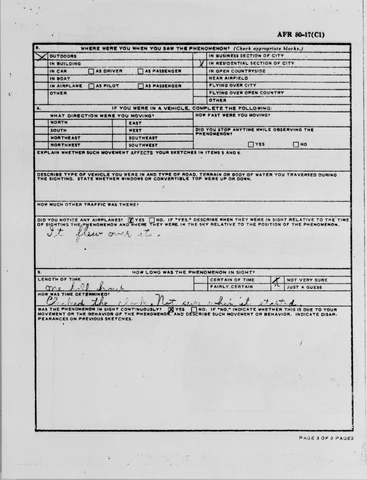 AFR 80-17(C1)
8. WHERE WERE YOU WHEN YOU SAW THE PHENOMENON? (Check appropriate blocks.)
X OUTDOORS
IN BUSINESS SECTION OF CITY
IN BUILDING
X IN RESIDENTIAL SECTION OF CITY
IN CAR AS DRIVER AS PASSENGER
IN OPEN COUNTRYSIDE
IN BOAT
NEAR AIRFIELD
IN AIRPLANE AS PILOT AS PASSENGER
FLYING OVER CITY
OTHER
FLYING OVER OPEN COUNTRY
OTHER
A. IF YOU WERE IN A VEHICLE, COMPLETE THE FOLLOWING:
WHAT DIRECTION WERE YOU MOVING?
HOW FAST WERE YOU MOVING?
NORTH EAST
SOUTH WEST
NORTHEAST SOUTHEAST
NORTHWEST SOUTHWEST
DID YOU STOP ANYTIME WHILE OBSERVING THE
PHENOMENON?
YES NO
EXPLAIN WHETHER SUCH MOVEMENT AFFECTS YOUR SKETCHES IN ITEMS 5 AND 6.
DESCRIBE TYPE OF VEHICLE YOU WERE IN AND TYPE OF ROAD, TERRAIN OR BODY OF WATER YOU TRAVERSED DURING
THE SIGHTING. STATE WHETHER WINDOWS OR CONVERTIBLE TOP WERE UP OR DOWN.
HOW MUCH OTHER TRAFFIC WAS THERE?
DID YOU NOTICE ANY AIRPLANES? X YES NO. IF "YES," DESCRIBE WHEN THEY WERE IN SIGHT RELATIVE TO THE TIME
OF SIGHTING THE PHENOMENON AND WHERE THEY WERE IN THE SKY RELATIVE TO THE POSITION OF THE PHENOMENON.
It flew over it.
9. HOW LONG WAS THE PHENOMENON IN SIGHT?
LENGTH OF TIME
CERTAIN OF TIME
X NOT VERY SURE
one half hour
FAIRLY CERTAIN
JUST A GUESS
HOW WAS TIME DETERMINED?
Checked the clock. Not sure when it started.
WAS THE PHENOMENON IN SIGHT CONTINUOUSLY? X YES NO. IF "NO," INDICATE WHETHER THIS IS DUE TO YOUR
MOVEMENT OR THE BEHAVIOR OF THE PHENOMENON, AND DESCRIBE SUCH MOVEMENT OR BEHAVIOR. INDICATE DISAP-
PEARANCES ON PREVIOUS SKETCHES.
PAGE 3 OF 9 PAGES